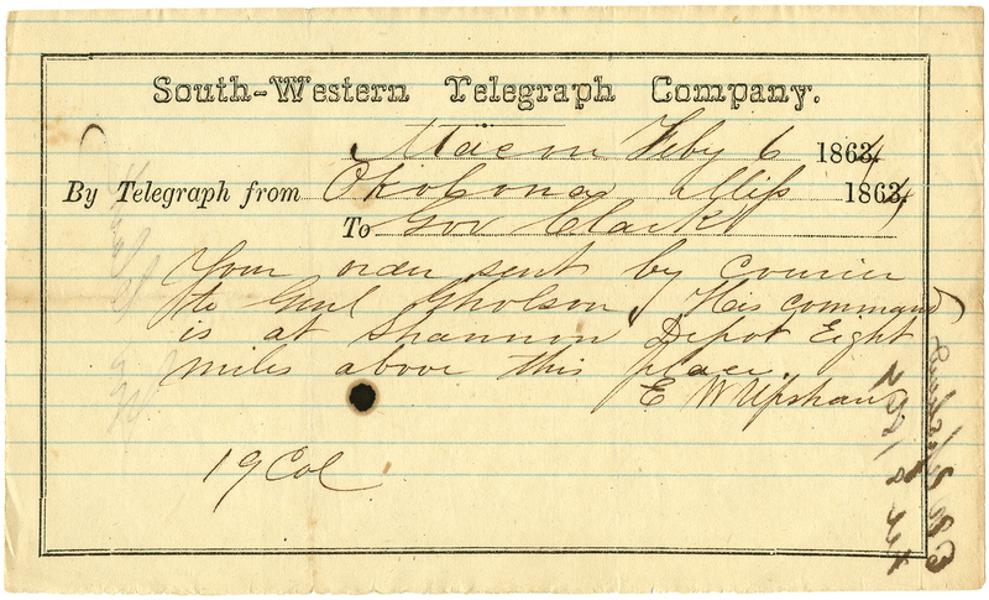 South-Western Telegraph Company.
Macon Feby 6 1864
By Telegraph from Okolona Miss 1864
To Gov Clark
Your order sent by Courier
to Genl Gholson. His command
is at Shannon Depot Eight
miles above this place.
E W Upshaw
19 Col